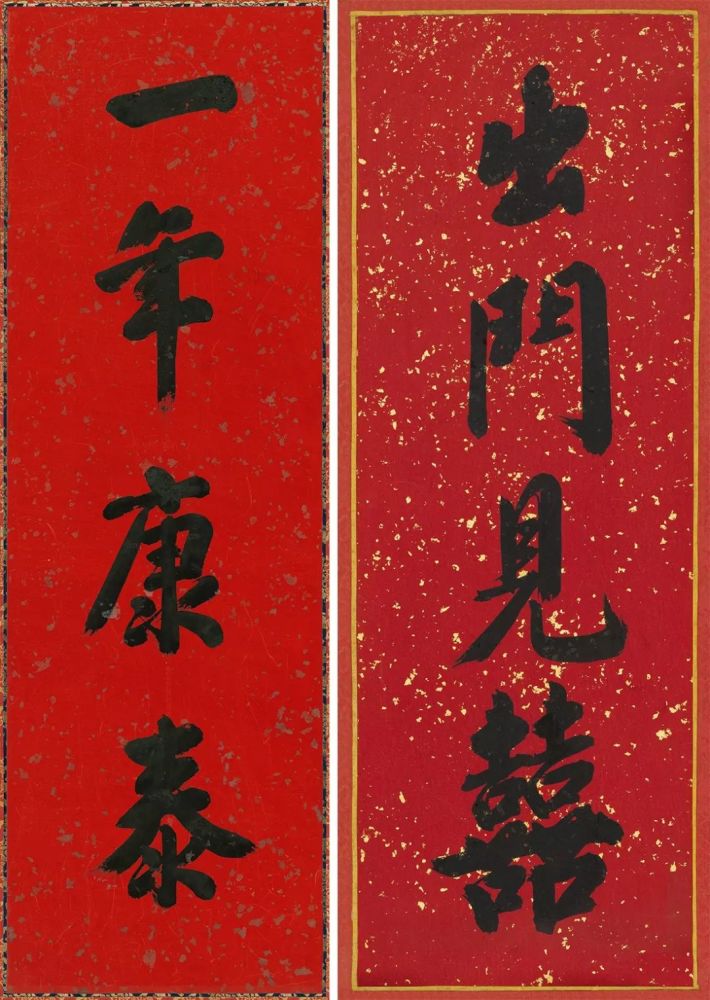 出門見囍
一年康泰